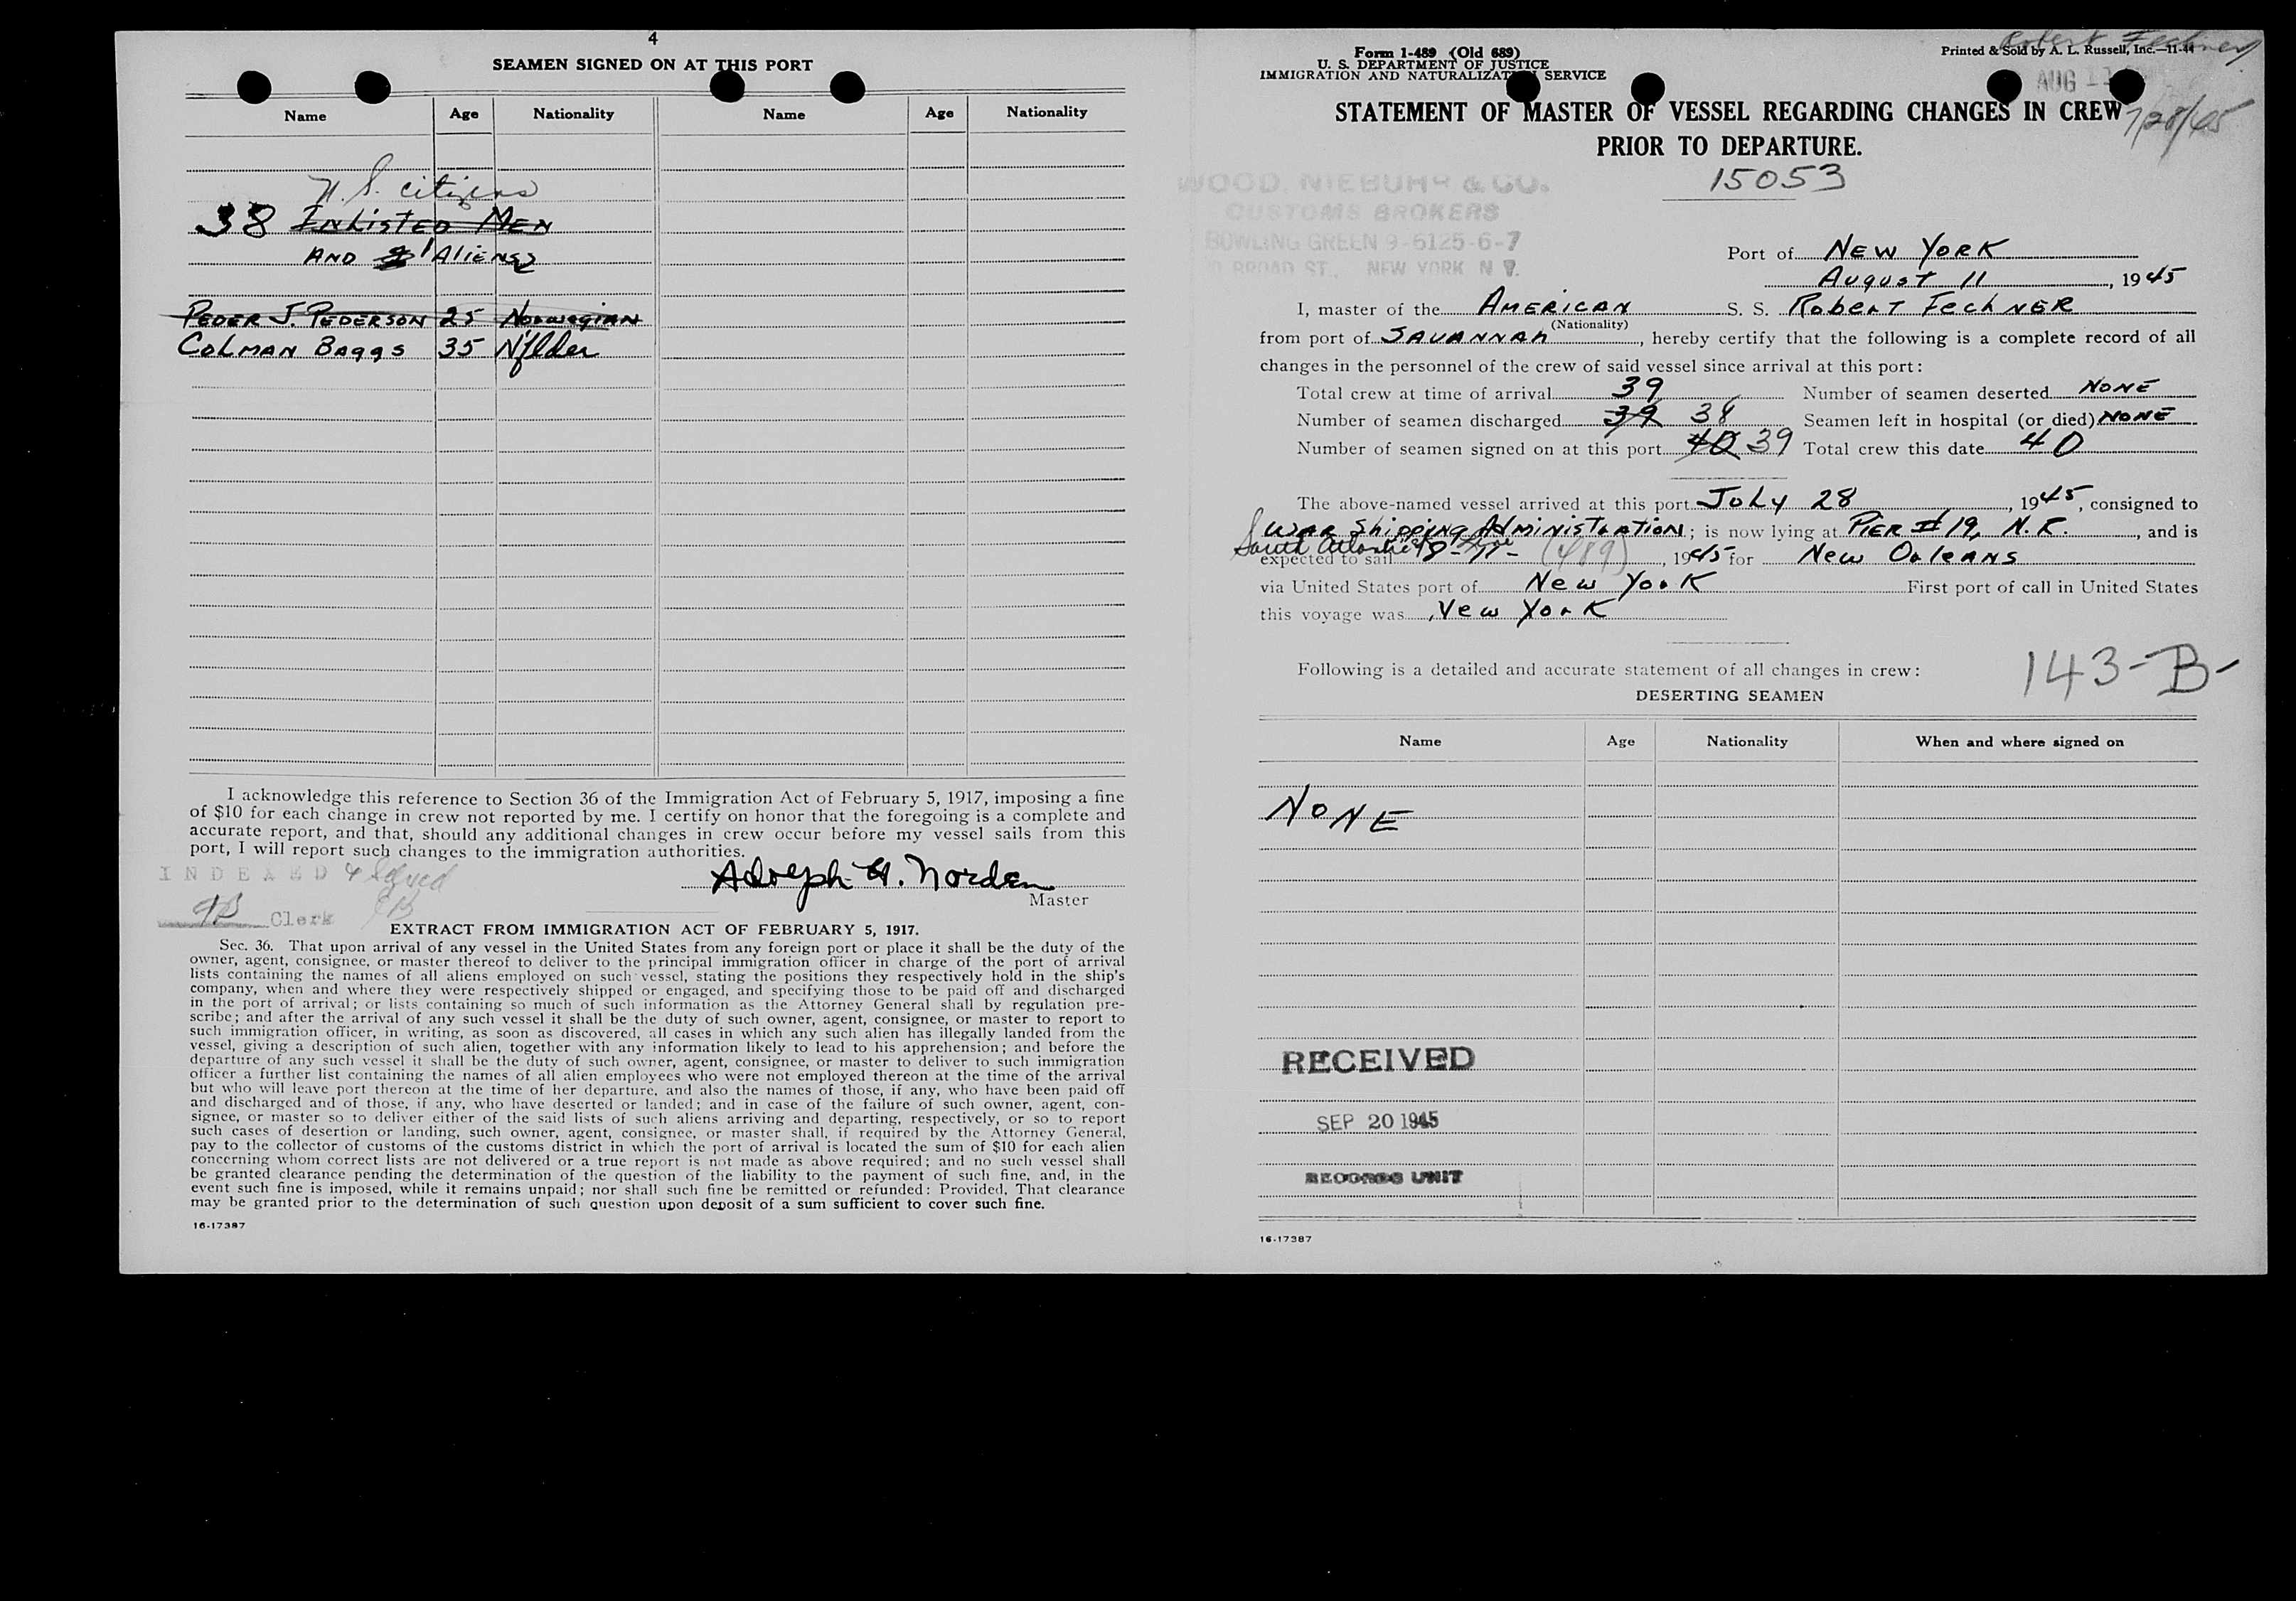 4
SEAMEN SIGNED ON AT THIS PORT
Name Age Nationality Name Age Nationality
U. S. citizens
38 Enlisted Men
AND 1 Aliens
PEDER J. PEDERSON 25 Norwegian
COLMAN BAGGS 35 N'flder
I acknowledge this reference to Section 36 of the Immigration Act of February 5, 1917, imposing a fine
of $10 for each change in crew not reported by me. I certify on honor that the foregoing is a complete and
accurate report, and that, should any additional changes in crew occur before my vessel sails from this
port, I will report such changes to the immigration authorities.
INDEXED
Adolph H. Norden
Master
Clerk
EXTRACT FROM IMMIGRATION ACT OF FEBRUARY 5, 1917.
Sec. 36. That upon arrival of any vessel in the United States from any foreign port or place it shall be the duty of the
owner, agent, consignee, or master thereof to deliver to the principal immigration officer in charge of the port of arrival
lists containing the names of all aliens employed on such vessel, stating the positions they respectively hold in the ship's
company, when and where they were respectively shipped or engaged, and specifying those to be paid off and discharged
in the port of arrival; or lists containing so much of such information as the Attorney General shall by regulation pre-
scribe; and after the arrival of any such vessel it shall be the duty of such owner, agent, consignee, or master to report to
such immigration officer, in writing, as soon as discovered, all cases in which any such alien has illegally landed from the
vessel, giving a description of such alien, together with any information likely to lead to his apprehension; and before the
departure of any such vessel it shall be the duty of such owner, agent, consignee, or master to deliver to such immigration
officer a further list containing the names of all alien employees who were not employed thereon at the time of the arrival
but who will leave port thereon at the time of her departure, and also the names of those, if any, who have been paid off
and discharged and of those, if any, who have deserted or landed; and in case of the failure of such owner, agent, con-
signee, or master so to deliver either of the said lists of such aliens arriving and departing, respectively, or so to report
such cases of desertion or landing, such owner, agent, consignee, or master shall, if required by the Attorney General,
pay to the collector of customs of the customs district in which the port of arrival is located the sum of $10 for each alien
concerning whom correct lists are not delivered or a true report is not made as above required; and no such vessel shall
be granted clearance pending the determination of the question of the liability to the payment of such fine, and, in the
event such fine is imposed, while it remains unpaid; nor shall such fine be remitted or refunded: Provided, That clearance
may be granted prior to the determination of such question upon deposit of a sum sufficient to cover such fine.
16-17387
Robert Fechner
Form I-489 (Old 689)
Printed & Sold by A. L. Russell, Inc.—11-44
U. S. DEPARTMENT OF JUSTICE
IMMIGRATION AND NATURALIZATION SERVICE
AUG
STATEMENT OF MASTER OF VESSEL REGARDING CHANGES IN CREW
7/28/45
PRIOR TO DEPARTURE.
15053
WOOD, NIEBUHR & CO.
CUSTOMS BROKERS
BOWLING GREEN 9-6125-6-7
BROAD ST., NEW YORK N Y.
Port of NEW YORK
August 11, 1945
I, master of the AMERICAN S. S. Robert Fechner
(Nationality)
from port of SAVANNAH, hereby certify that the following is a complete record of all
changes in the personnel of the crew of said vessel since arrival at this port:
Total crew at time of arrival 39 Number of seamen deserted NONE
Number of seamen discharged 39 38 Seamen left in hospital (or died) NONE
Number of seamen signed on at this port 40 39 Total crew this date 40
The above-named vessel arrived at this port July 28, 1945, consigned to
War Shipping Administration; is now lying at PIER # 19, N.R., and is
South Atlantic
expected to sail (489), 1945 for New Orleans
via United States port of New York First port of call in United States
this voyage was New York
143-B-
Following is a detailed and accurate statement of all changes in crew:
DESERTING SEAMEN
Name Age Nationality When and where signed on
NONE
RECEIVED
SEP 20 1945
RECORDS UNIT
16-17387